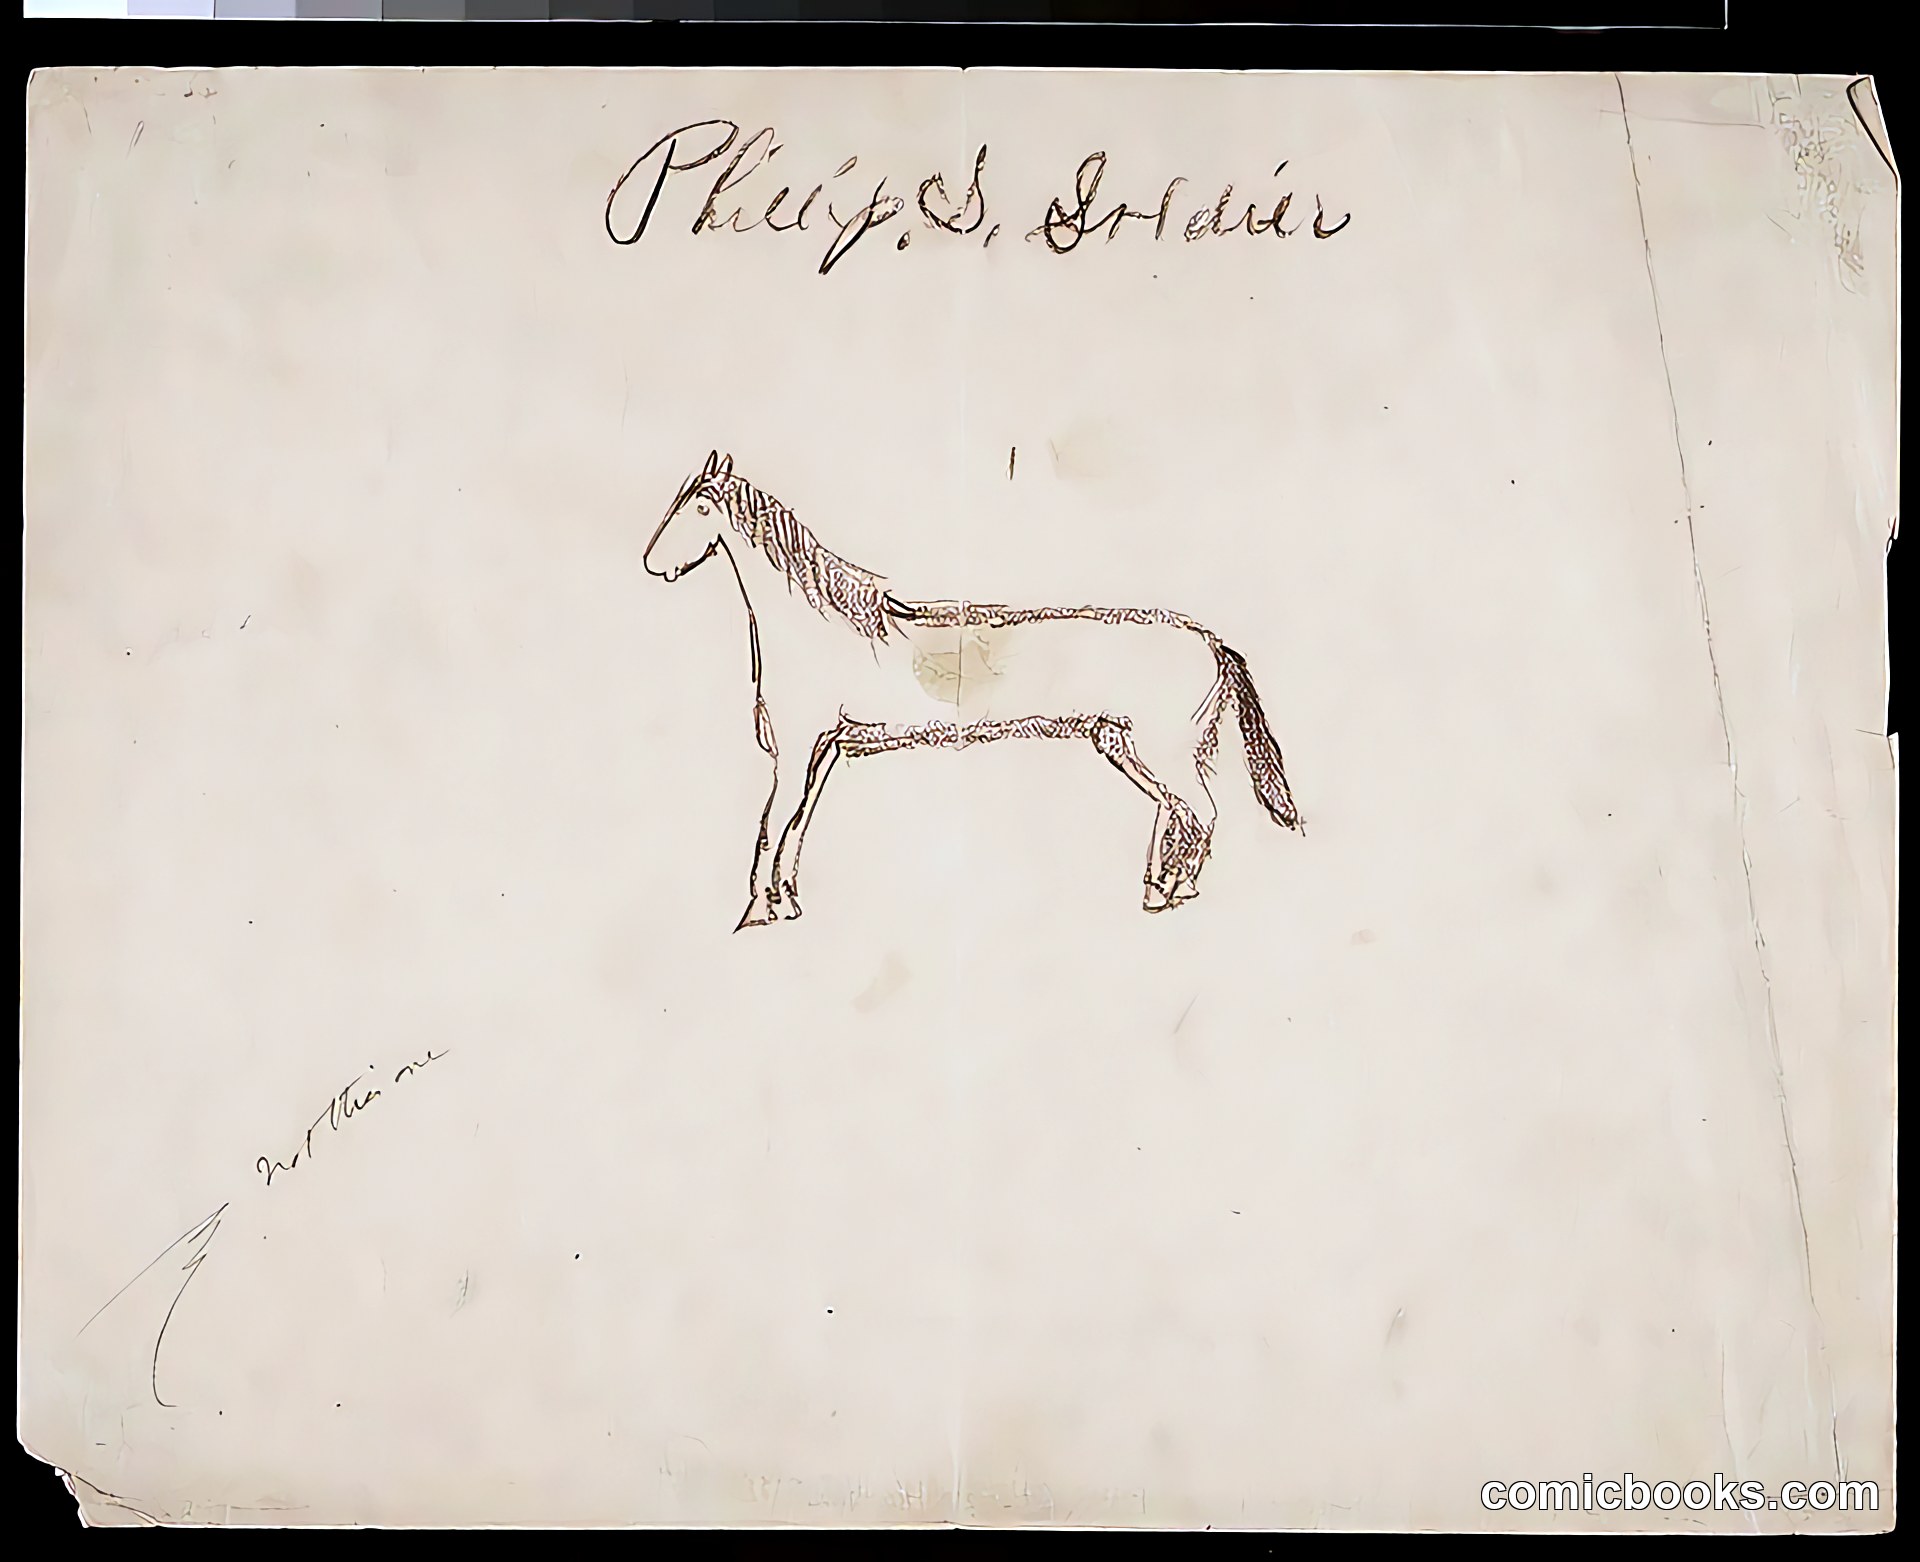 Phillip. S. Soldier
not this one
comicbooks.com